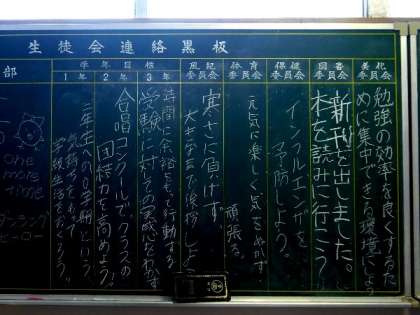 生徒会連絡黒板
美化委員会
勉強の効率を良くするた
めに集中できる環境にしよう
図書委員会
新刊を出しました。
本を読みに行こう
保健委員会
インフルエンザを
予防しよう
体育委員会
元気に楽しく気をぬかず
頑張る。
風紀委員会
寒さに負けず、
大きな声で挨拶しよう
学年目標
3年
時間に余裕をもって行動する
受験に対する実感をわかす
2年
合唱コンクールで、クラスの
団結力を高めよう。
1年
二年生への0学期という
気持ちをもって
学級生活をおくろう。
部
one
more
time
ダンシング
ヒーロー